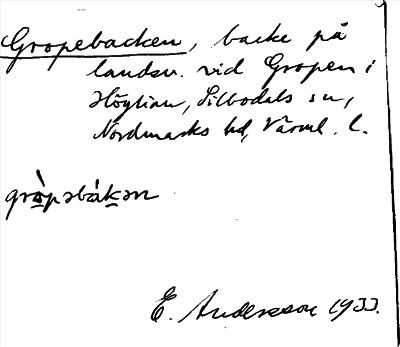 Gropebacken, backe på
landsv. vid Gropen i
Högtian, Silbodals sn,
Nordmarks hd, Värml. l.
gròpəbákən
E. Andersson 1933.